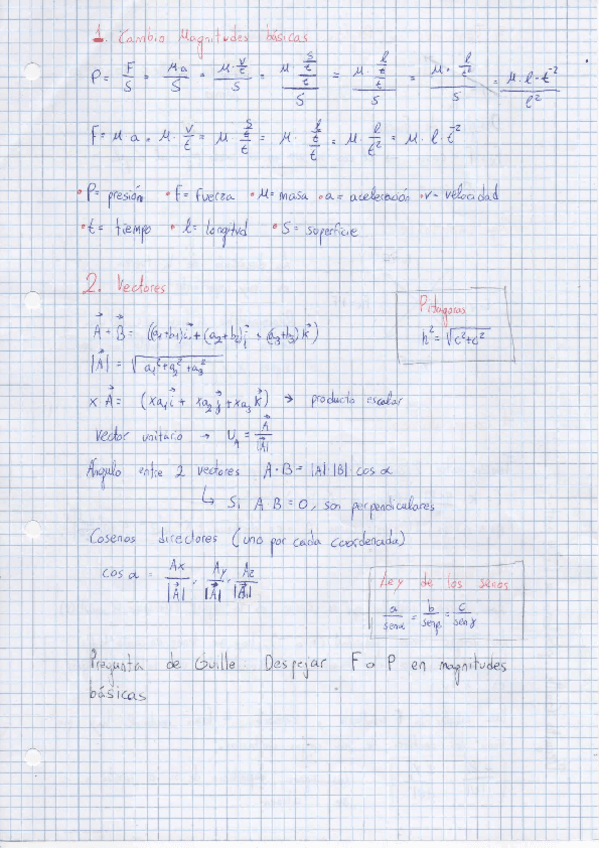 1. Cambio Magnitudes básicas
P = F/S = M·a/S = M·(v/t)/S = M·((s/t)/t)/S = M·((l/t)/t)/S = M·(l/t²)/S = M·l·t⁻²/l²
F = M·a = M·v/t = M·(s/t)/t = M·(l/t)/t = M·l/t² = M·l·t⁻²
• P = presión • F = Fuerza • M = masa • a = aceleración • v = velocidad
• t = tiempo • l = longitud • S = superficie
2. Vectores
Pitágoras
h² = √c²+c²
A⃗ + B⃗ = ((a₁+b₁)i⃗ + (a₂+b₂)j⃗ + (a₃+b₃)k⃗)
|A⃗| = √a₁²+a₂²+a₃²
x·A⃗ = (xa₁i⃗ + xa₂j⃗ + xa₃k⃗) → producto escalar
Vector unitario → U_A = A⃗/|A⃗|
Ángulo entre 2 vectores A·B = |A|·|B| cos α
↳ Si A·B = 0, son perpendiculares
Cosenos directores (uno por cada coordenada)
cos α = Ax/|A⃗|, Ay/|A⃗|, Az/|A⃗|
Ley de los senos
a/sen α = b/sen β = c/sen γ
Pregunta de Guille: Despejar F o P en magnitudes
básicas